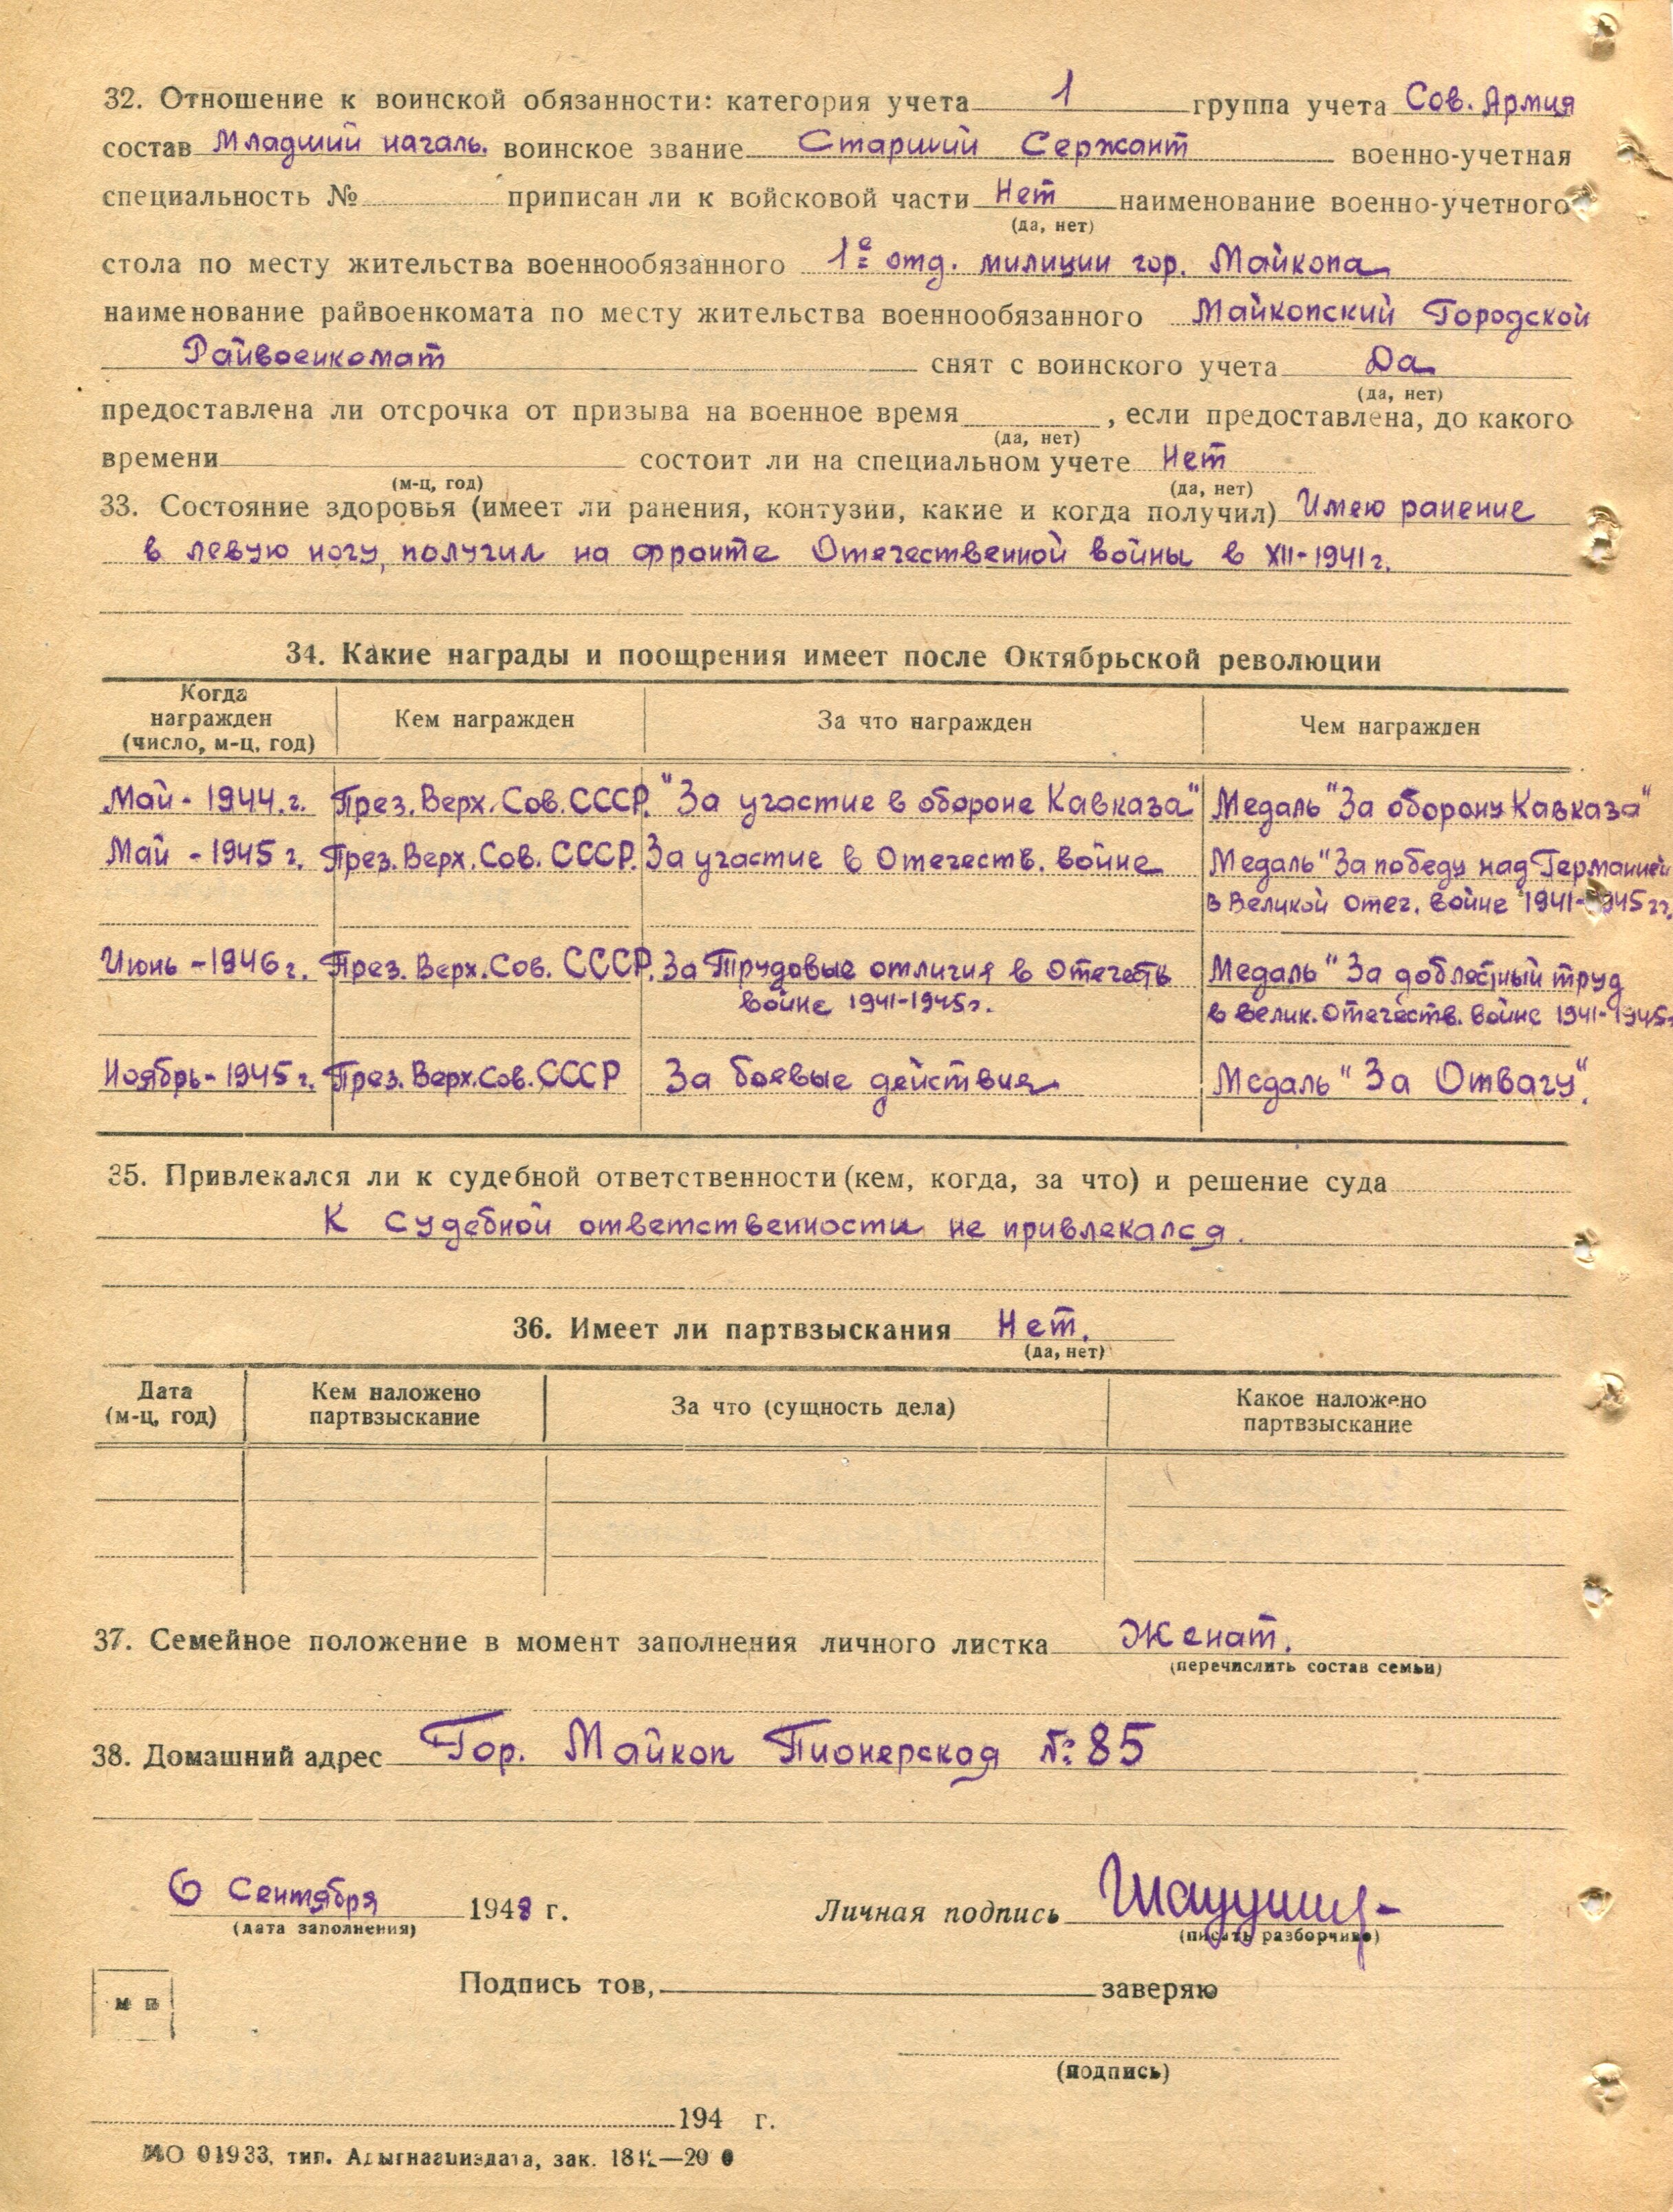 32. Отношение к воинской обязанности: категория учета 1 группа учета Сов. Армия
состав Младший началь. воинское звание Старший Сержант военно-учетная
специальность № приписан ли к войсковой части Нет наименование военно-учетного
(да, нет)
стола по месту жительства военнообязанного 1е отд. милиции гор. Майкопа
наименование райвоенкомата по месту жительства военнообязанного Майкопский Городской
Райвоенкомат снят с воинского учета Да
(да, нет)
предоставлена ли отсрочка от призыва на военное время , если предоставлена, до какого
(да, нет)
времени состоит ли на специальном учете Нет
(м-ц, год) (да, нет)
33. Состояние здоровья (имеет ли ранения, контузии, какие и когда получил) Имею ранение
в левую ногу, получил на фронте Отечественной войны в XII-1941 г.
34. Какие награды и поощрения имеет после Октябрьской революции
Когда награжден (число, м-ц, год) Кем награжден За что награжден Чем награжден
Май - 1944. г. През. Верх. Сов. СССР. "За участие в обороне Кавказа" Медаль "За оборону Кавказа"
Май - 1945 г. През. Верх. Сов. СССР. За участие в Отечеств. войне Медаль "За победу над Германией
в Великой Отеч. войне 1941-1945 гг.
Июнь - 1946 г. През. Верх. Сов. СССР. За Трудовые отличия в Отечеств Медаль "За доблестный труд
войне 1941-1945 г. в Велик. Отечеств. войне 1941-1945г
Ноябрь - 1945 г. През. Верх. Сов. СССР За боевые действия Медаль "За Отвагу".
35. Привлекался ли к судебной ответственности (кем, когда, за что) и решение суда
К судебной ответственности не привлекался.
36. Имеет ли партвзыскания Нет.
(да, нет)
Дата (м-ц, год) Кем наложено партвзыскание За что (сущность дела) Какое наложено партвзыскание
37. Семейное положение в момент заполнения личного листка Женат.
(перечислить состав семьи)
38. Домашний адрес Гор. Майкоп Пионерская №: 85
6 Сентября 1948 г. Личная подпись
(дата заполнения) (писать разборчиво)
Подпись тов, заверяю
М П
(подпись)
194 г.
МО 01933. тип. Адыгнациздата, зак.